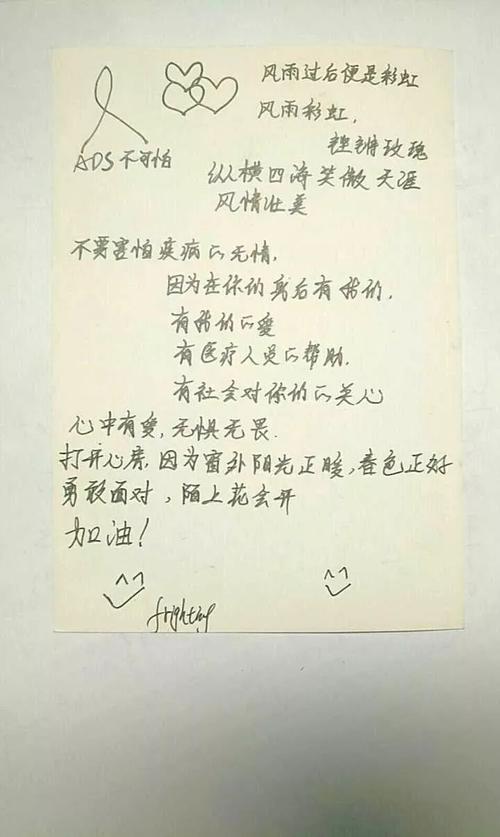 风雨过后便是彩虹
风雨彩虹,
铿锵玫瑰
ADS不可怕
纵横四海笑傲天涯
风情壮美
不要害怕疾病的无情,
因为在你的身后有我的,
有我的的爱
有医疗人员的帮助.
有社会对你的的关心
心中有爱,无惧无畏.
打开心房,因为窗外阳光正暖,春色正好
勇敢面对,陌上花会开
加油!